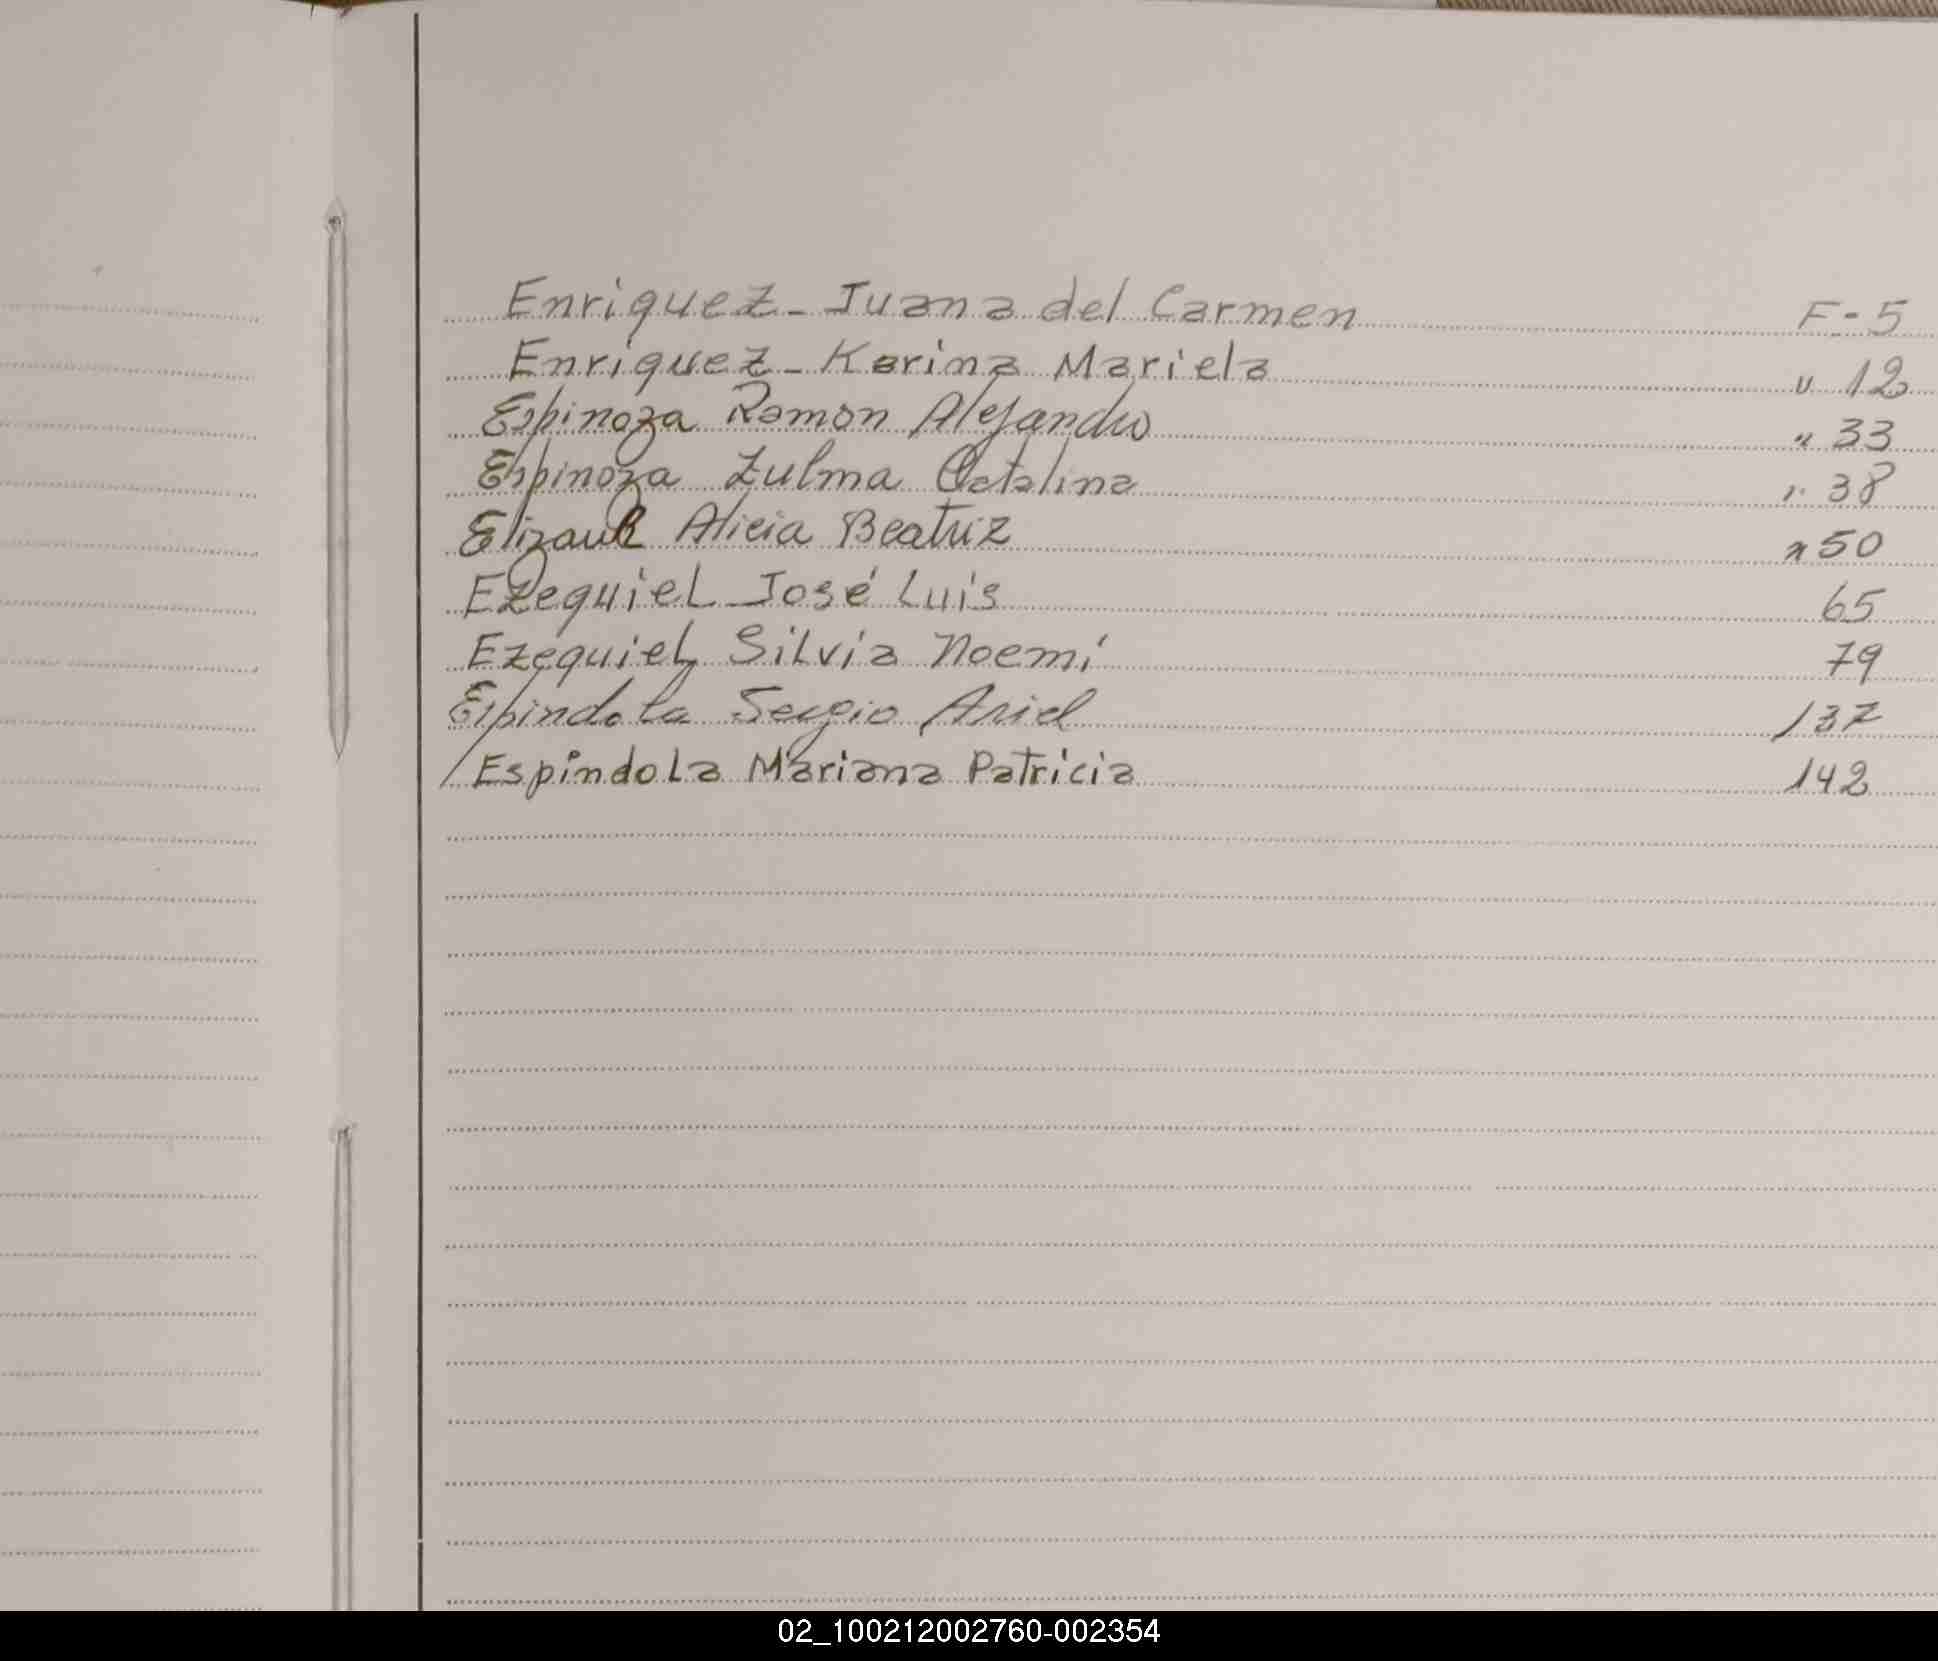 Enriquez - Juana del Carmen F - 5
Enriquez - Karina Mariela " 12
Espinoza Ramon Alejandro " 33
Espinoza Zulma Catalina " 38
Alicia Beatriz " 50
Ezequiel José Luis 65
Ezequiel Silvia Noemí 79
Espindola Sergio Ariel 137
Espindola Mariana Patricia 142
02_100212002760-002354